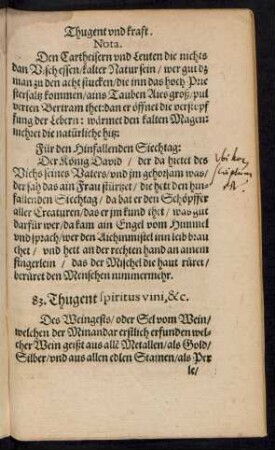 Thugent vnd kraft.
Nota.
Den Cartheisern vnd Leuten die nichts
dan Visch essen / kalter Natur sein / wer gut dz
man zu den acht stucken / die inn das hoch Prie
stersaltz kommen / ains Tauben Aies groß / pul
verten Bertram thet: dan er öffnet die verstopf
fung der Lebern: wärmet den kalten Magen:
mehret die natürliche hitz:
Für den Hinfallenden Siechtag:
Der König David / der da hietet des
Viehs seines Vaters / vnd jm gehorsam was:
der sah das ain Frau stürtzet / die hett den hin-
fallenden Siechtag / da bat er den Schöpffer
aller Creaturen / das er jm kund thet / was gut
darfür wer / da kam ain Engel vom Himmel
vnd sprach / wer den Aichinmistel inn leib brau
chet / vnd hett an der rechten hand an ainem
fingerlein / das der Mischel die haut rüret /
berüret den Menschen nimmermehr.
83. Thugent spiritus vini, &c.
Des Weingeists / oder Sel vom Wein /
welchen der Minandar erstlich erfunden wel-
cher Wein geißt aus allē Metallen / als Gold /
Silber / vnd aus allen edlen Stainen / als Per
le /